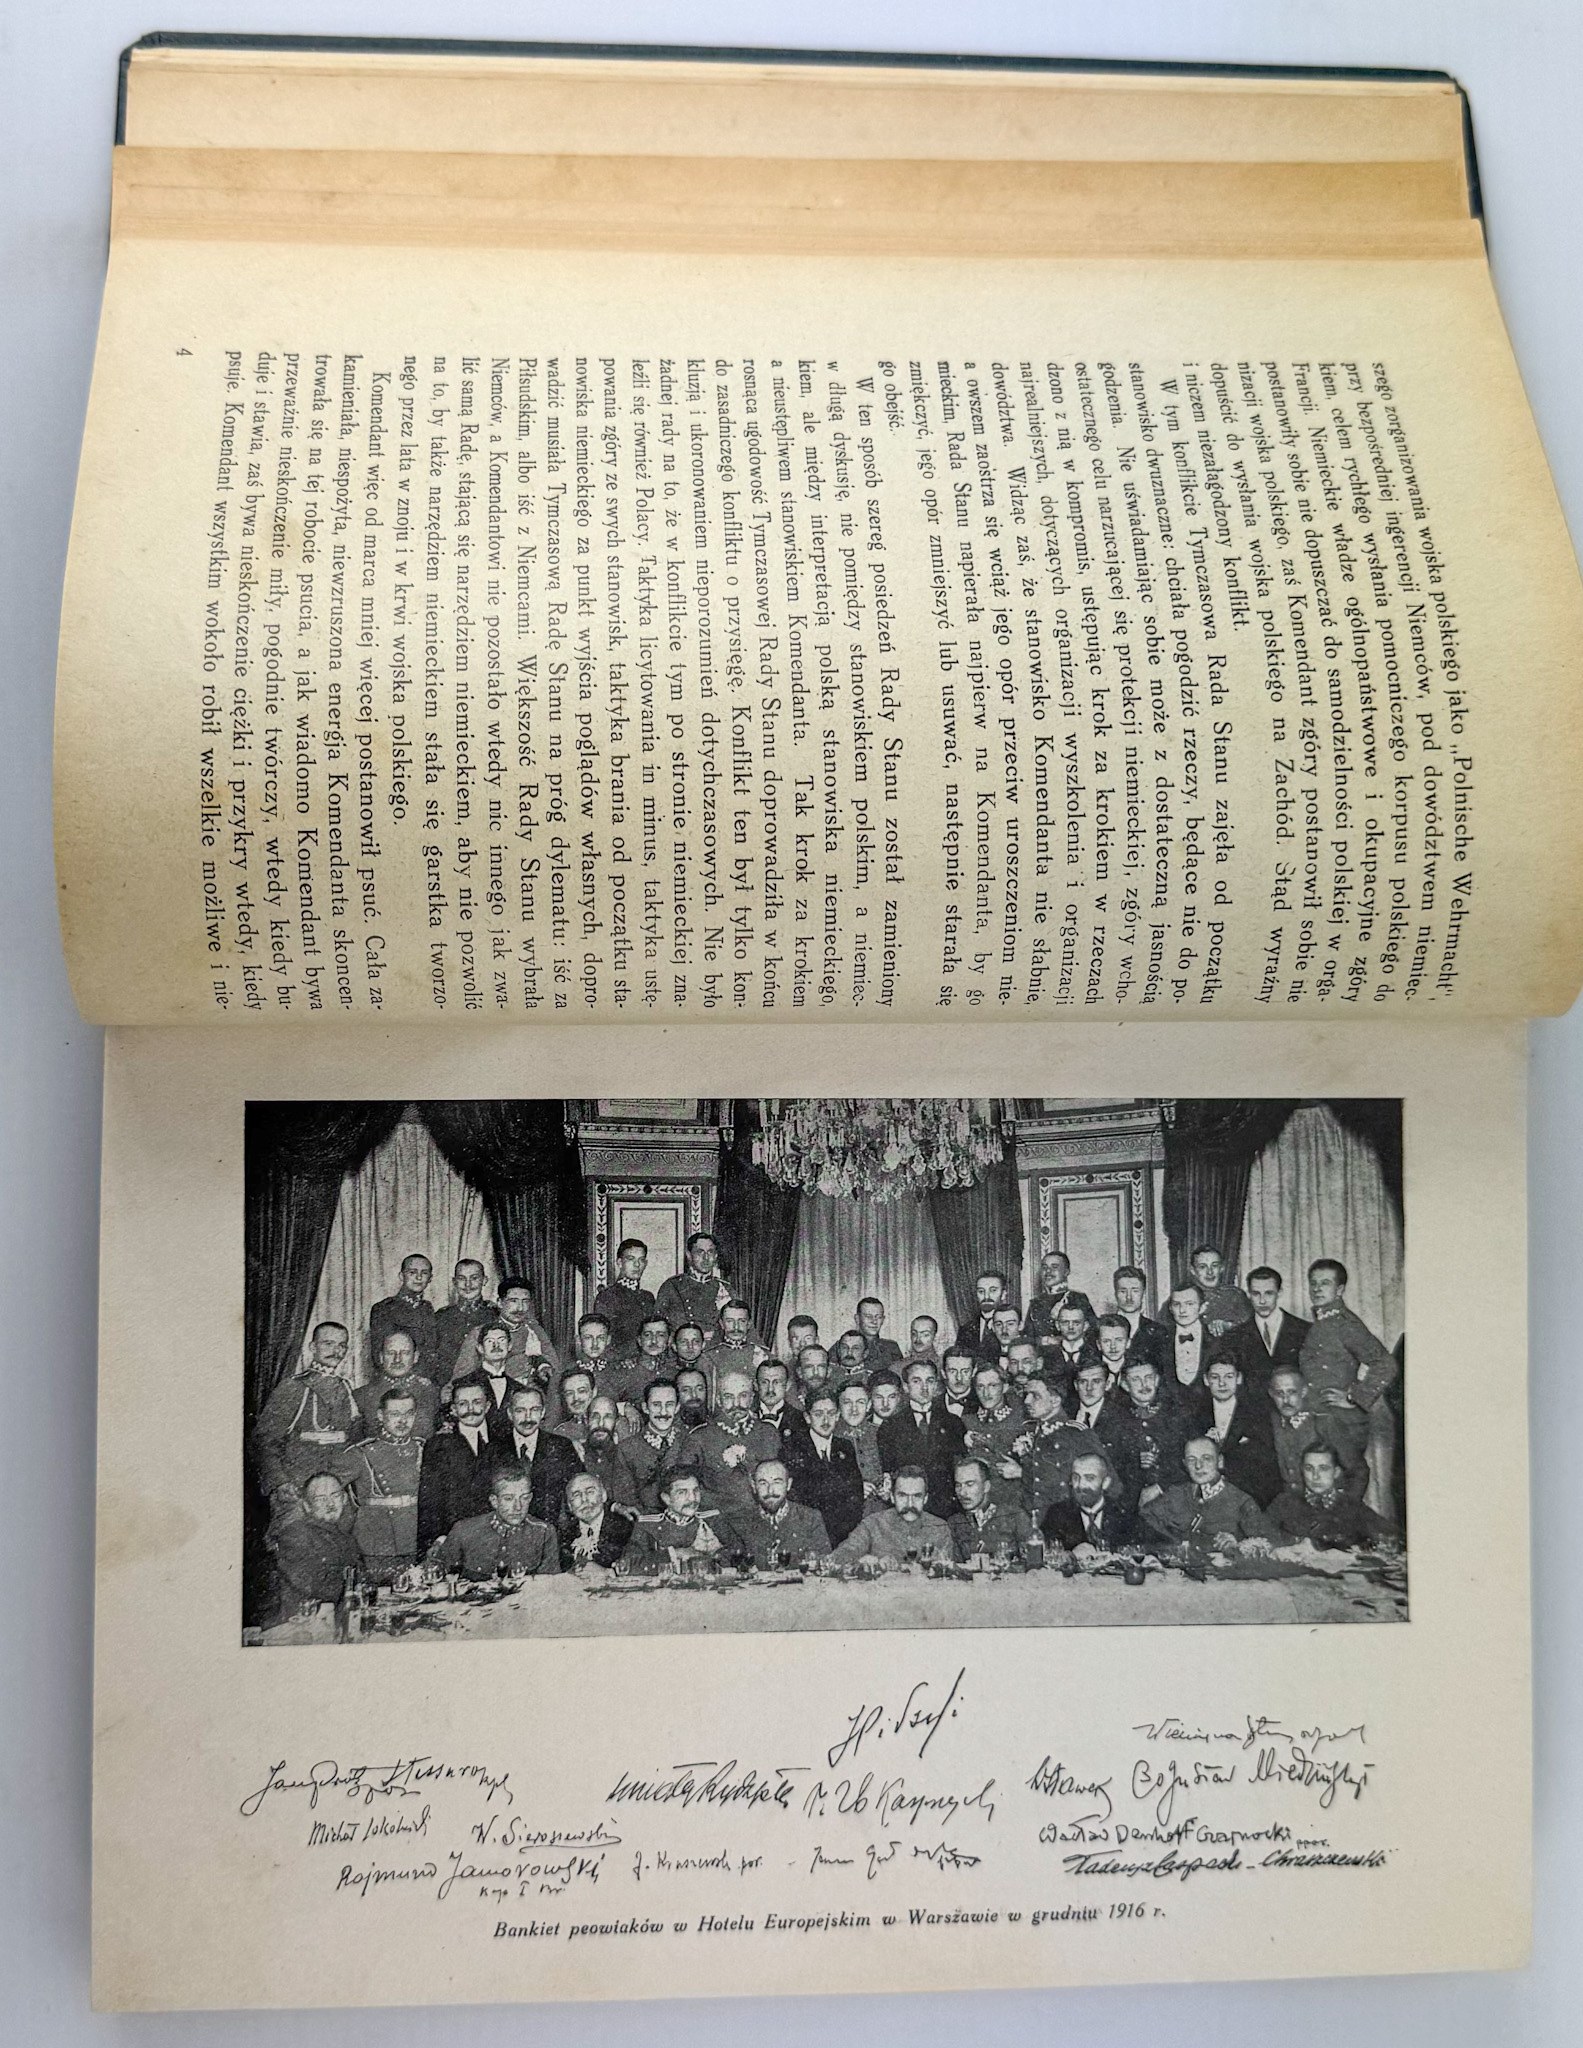 szego zorganizowania wojska polskiego jako „Polnische Wehrmacht",
przy bezpośredniej ingerencji Niemców, pod dowództwem niemiec-
kiem, celem rychłego wysłania pomocniczego korpusu polskiego do
Francji. Niemieckie władze ogólnopaństwowe i okupacyjne zgóry
postanowiły sobie nie dopuszczać do samodzielności polskiej w orga-
nizacji wojska polskiego, zaś Komendant zgóry postanowił sobie nie
dopuścić do wysłania wojska polskiego na Zachód. Stąd wyraźny
i niczem niezałagodzony konflikt.
W tym konflikcie Tymczasowa Rada Stanu zajęła od początku
stanowisko dwuznaczne: chciała pogodzić rzeczy, będące nie do po-
godzenia. Nie uświadamiając sobie może z dostateczną jasnością
ostatecznego celu narzucającej się protekcji niemieckiej, zgóry wcho-
dzono z nią w kompromis, ustępując krok za krokiem w rzeczach
najrealniejszych, dotyczących organizacji wyszkolenia i organizacji
dowództwa. Widząc zaś, że stanowisko Komendanta nie słabnie,
a owszem zaostrza się wciąż jego opór przeciw uroszczeniom nie-
mieckim, Rada Stanu napierała najpierw na Komendanta, by go
zmiękczyć, jego opór zmniejszyć lub usuwać, następnie starała się
go obejść.
W ten sposób szereg posiedzeń Rady Stanu został zamieniony
w długą dyskusję, nie pomiędzy stanowiskiem polskim, a niemiec-
kiem, ale między interpretacją polską stanowiska niemieckiego,
a nieustępliwem stanowiskiem Komendanta. Tak krok za krokiem
rosnąca ugodowość Tymczasowej Rady Stanu doprowadziła w końcu
do zasadniczego konfliktu o przysięgę. Konflikt ten był tylko kon-
kluzją i ukoronowaniem nieporozumień dotychczasowych. Nie było
żadnej rady na to, że w konflikcie tym po stronie niemieckiej zna-
leźli się również Polacy. Taktyka licytowania in minus, taktyka ustę-
powania zgóry ze swych stanowisk, taktyka brania od początku sta-
nowiska niemieckiego za punkt wyjścia poglądów własnych, dopro-
wadzić musiała Tymczasową Radę Stanu na próg dylematu: iść za
Piłsudskim, albo iść z Niemcami. Większość Rady Stanu wybrała
Niemców, a Komendantowi nie pozostało wtedy nic innego jak zwa-
lić samą Radę, stającą się narzędziem niemieckiem, aby nie pozwolić
na to, by także narzędziem niemieckiem stała się garstka tworzo-
nego przez lata w znoju i w krwi wojska polskiego.
Komendant więc od marca mniej więcej postanowił psuć. Cała za-
kamieniała, niespożyta, niewzruszona energja Komendanta skoncen-
trowała się na tej robocie psucia, a jak wiadomo Komendant bywa
przeważnie nieskończenie miły, pogodnie twórczy, wtedy kiedy bu-
duje i stawia, zaś bywa nieskończenie ciężki i przykry wtedy, kiedy
psuje. Komendant wszystkim wokoło robił wszelkie możliwe i nie-
4
Michał Sokolnicki
W. Sieroszewski
Bogusław Miedziński
Wacław Denhoff Czarnocki
Rajmund Jaworowski
Bankiet peowiaków w Hotelu Europejskim w Warszawie w grudniu 1916 r.